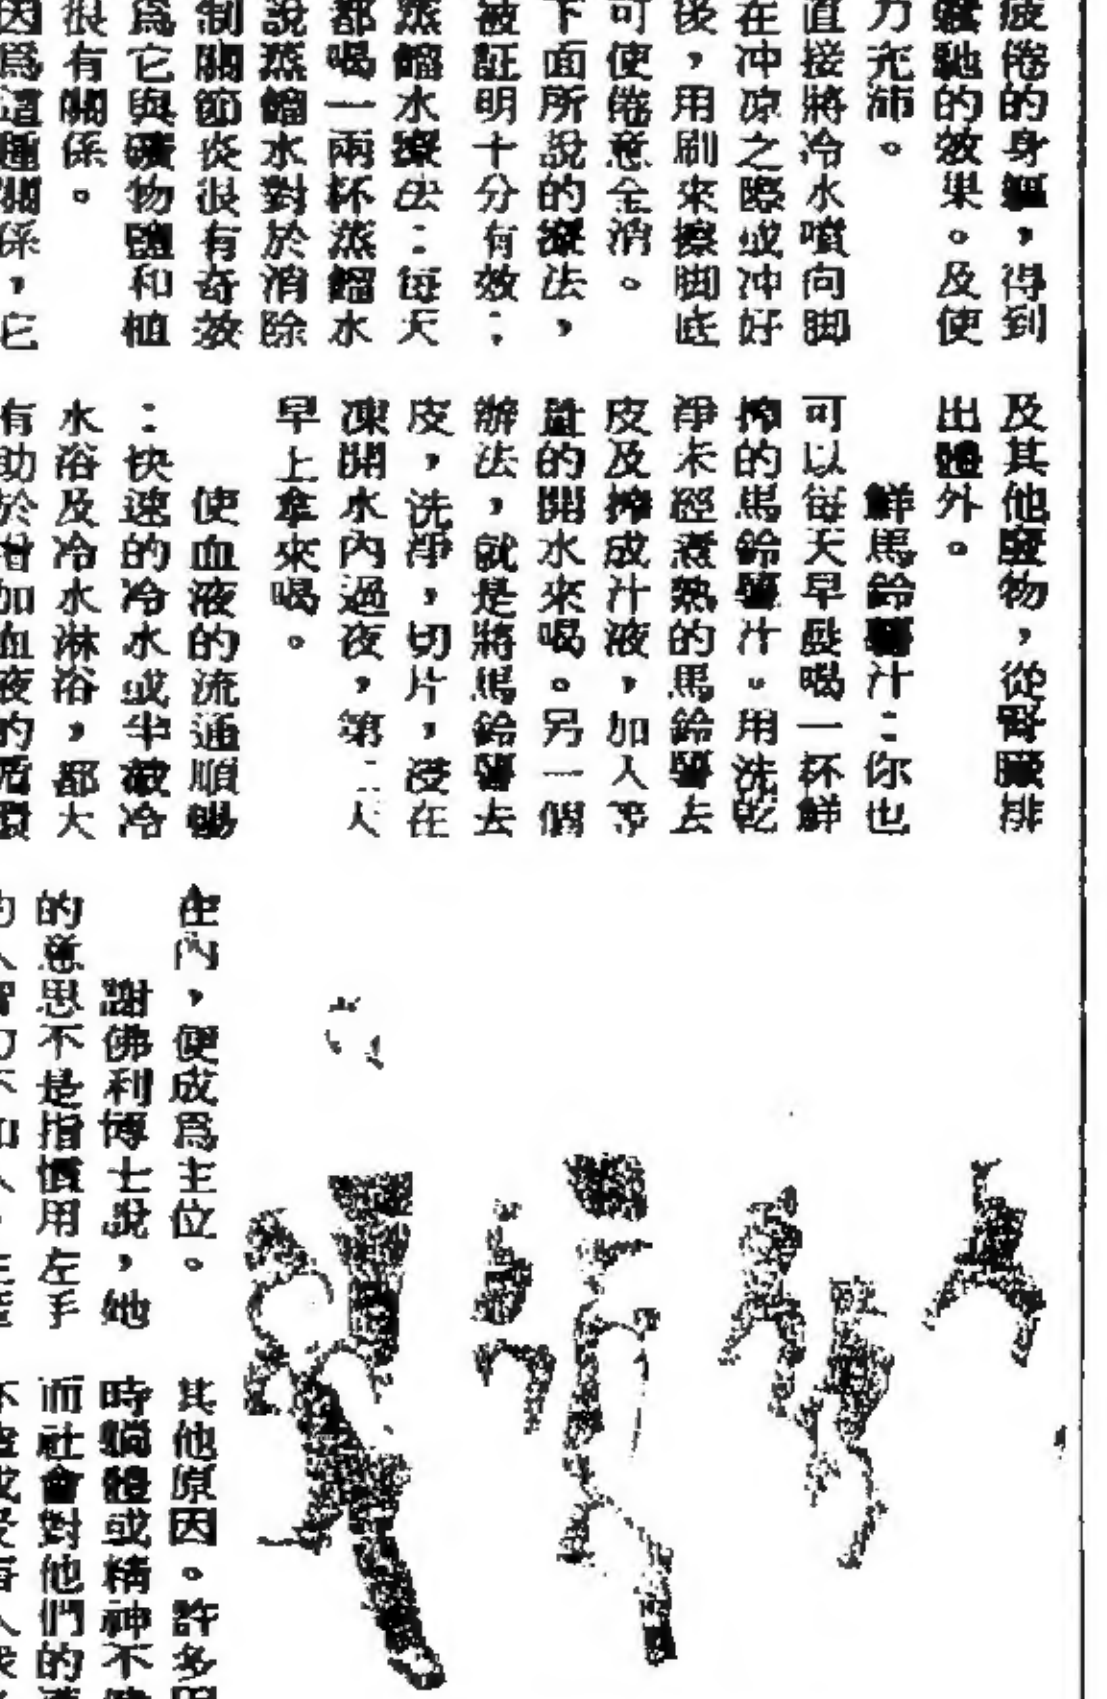 疲倦的身軀，得到
鬆馳的效果。及使
力充沛。
直接將冷水噴向脚
在冲凉之際或冲好
後，用刷來擦脚底
可使倦意全消。
下面所說的療法，
被証明十分有效：
蒸餾水療法：每天
都喝一兩杯蒸餾水
說蒸餾水對於消除
制關節炎很有奇效
爲它與礦物鹽和植
很有關係。
因爲這種關係，它
及其他廢物，從腎臟排
出體外。
鮮馬鈴薯汁：你也
可以每天早晨喝一杯鮮
搾的馬鈴薯汁。用洗乾
淨未經煮熟的馬鈴薯去
皮及搾成汁液，加入等
量的開水來喝。另一個
辦法，就是將馬鈴薯去
皮，洗淨，切片，浸在
凍開水內過夜，第二天
早上拿來喝。
使血液的流通順暢
：快速的冷水或半截冷
水浴及冷水淋浴，都大
有助於增加血液的循環
在內，便成爲主位。
謝佛利博士說，她
的意思不是指慣用左手
其他原因。許多
時軀體或精神不
而社會對他們的